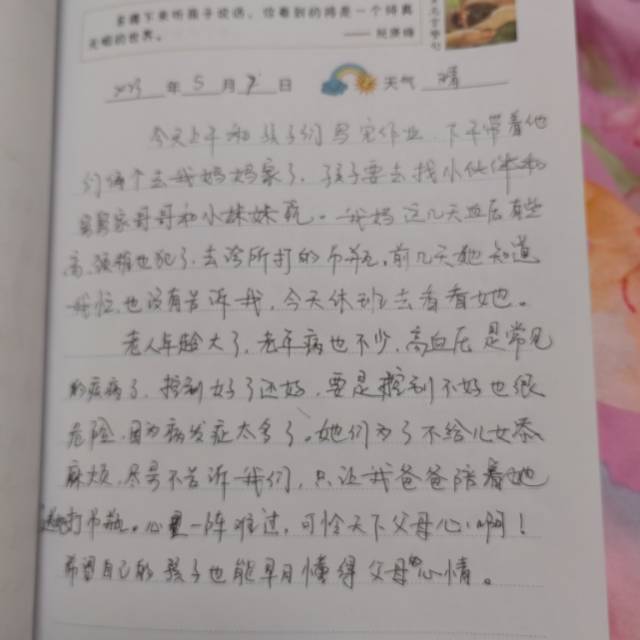 下来听孩子说话,你看到的将是一个纯真
无邪的世界。
年5月7日 天气 晴
今天上午和孩子们写完作业,下午带着他
们俩个去我妈妈家了,孩子要去找小伙伴和
舅舅家哥哥和小妹妹玩。我妈这几天血压有些
高,颈椎也犯了,去诊所打的吊瓶,前几天她知道
我忙,也没有告诉我,今天休班去看看她。
老人年龄大了,老年病也不少,高血压是常见
的疾病了,控制好了还好,要是控制不好也很
危险,因为病发症太多了。她们为了不给儿女添
麻烦,尽量不告诉我们,只让我爸爸陪着她
打吊瓶。心里一阵难过,可怜天下父母心啊!
希望自己的孩子也能早日懂得父母的心情。